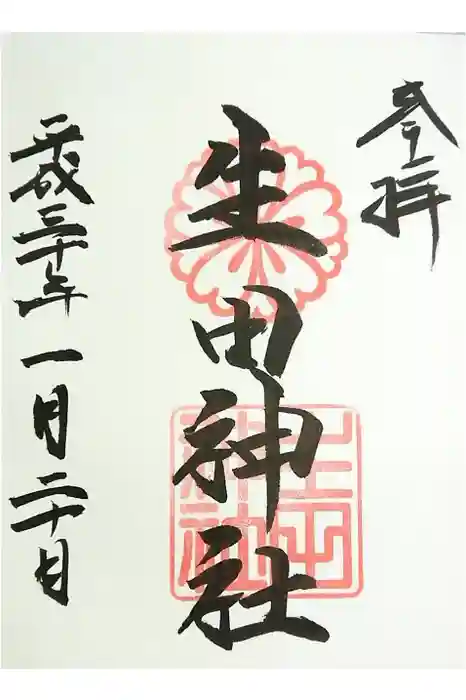 参拝
生田神社
生田神社
平成三十年一月二十日